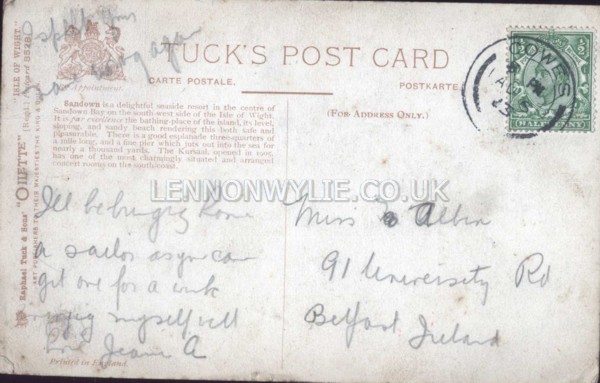 TUCK'S POST CARD
CARTE POSTALE.
POSTKARTE.
(FOR ADDRESS ONLY.)
Sandown is a delightful seaside resort in the centre of
Sandown Bay on the south-east side of the Isle of Wight.
It is par excellence the bathing place of the island, its level,
sloping, and sandy beach rendering this both safe and
pleasurable. There is a good esplanade three-quarters of
a mile long, and a fine pier which juts out into the sea for
nearly a thousand yards. The Kursaal, opened in
has one of the most charmingly situated and arranged
concert rooms on the
Raphael Tuck & Sons' "OILETTE" [Regd.] Postcard "ISLE OF WIGHT."
ART PUBLISHERS TO THEIR MAJESTIES THE KING &
COWES
HALFPENNY
LENNONWYLIE.CO.UK
I'll be bringing home
a sailor as you can
get one for a wink
enjoying myself well
love Jeanie A
Miss Albin
91 University Rd
Belfast Ireland
Printed in England.